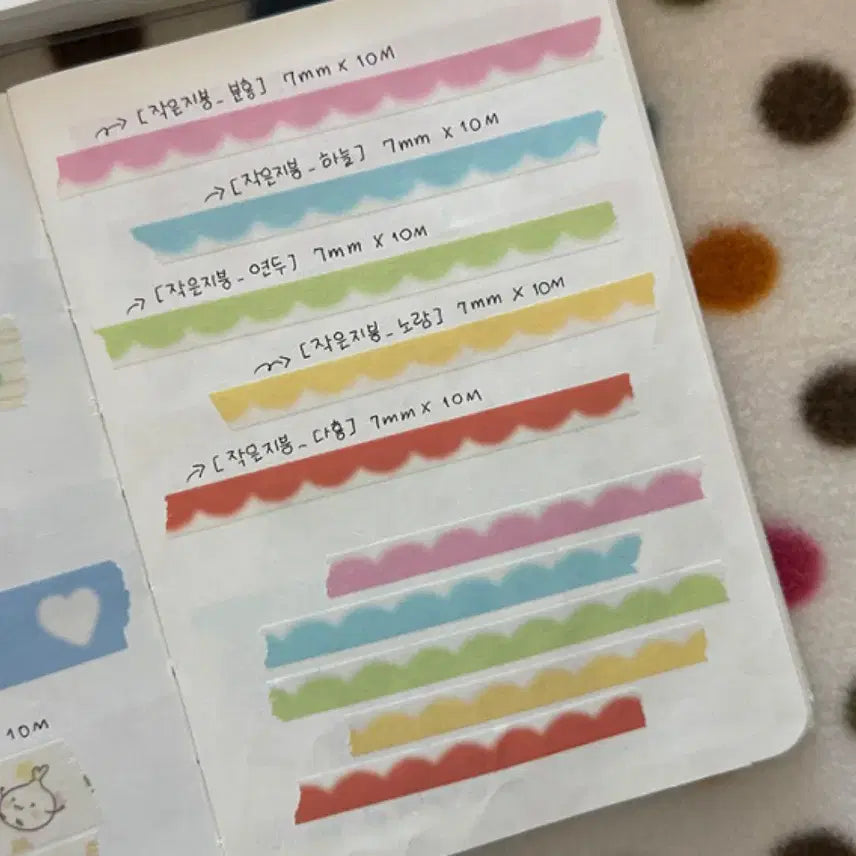 → [작은지붕_분홍] 7mm X 10M
→ [작은지붕_하늘] 7mm X 10M
→ [작은지붕_연두] 7mm X 10M
→ [작은지붕_노랑] 7mm X 10M
→ [작은지붕_다홍] 7mm X 10M
10M